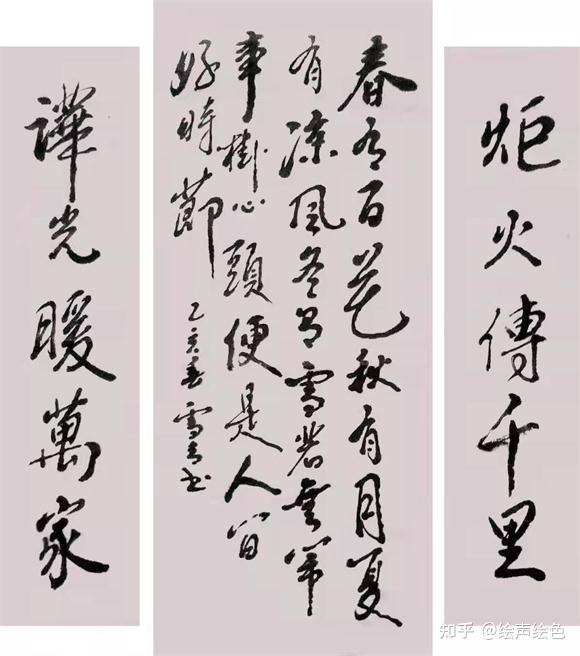 炬火傳千里
春有百花秋有月夏
有涼風冬有雪若無閑
事掛心頭便是人間
好時節
亥春雪书
譁光暖萬家
知乎 @绘声绘色